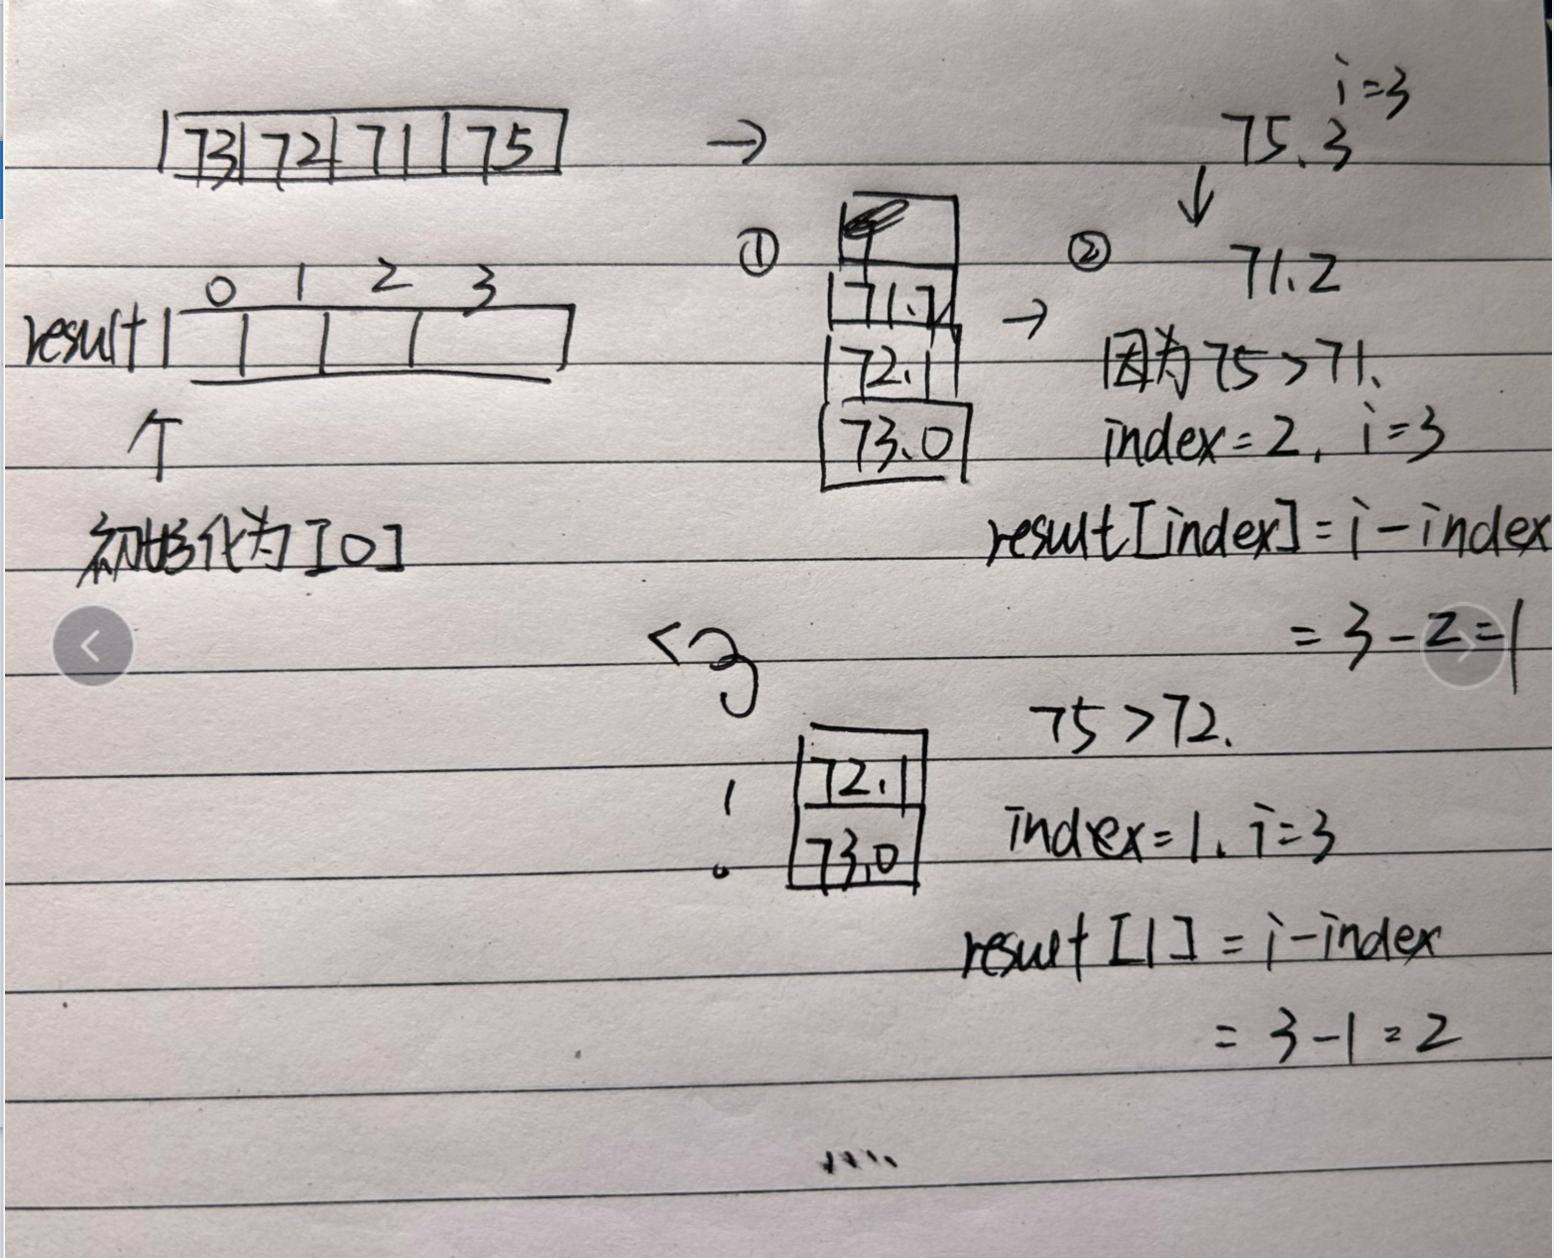 73 72 71 75 →
0 1 2 3
result
↑
初始化为[0]
①
71.2
72.1
73.0
→
i=3
75.3
↓
② 71.2
因为75>71、
index=2, i=3
result[index]=i-index
=3-2=1
75>72.
1 72.1
0 73.0
index=1、i=3
result[1]=i-index
=3-1=2
....